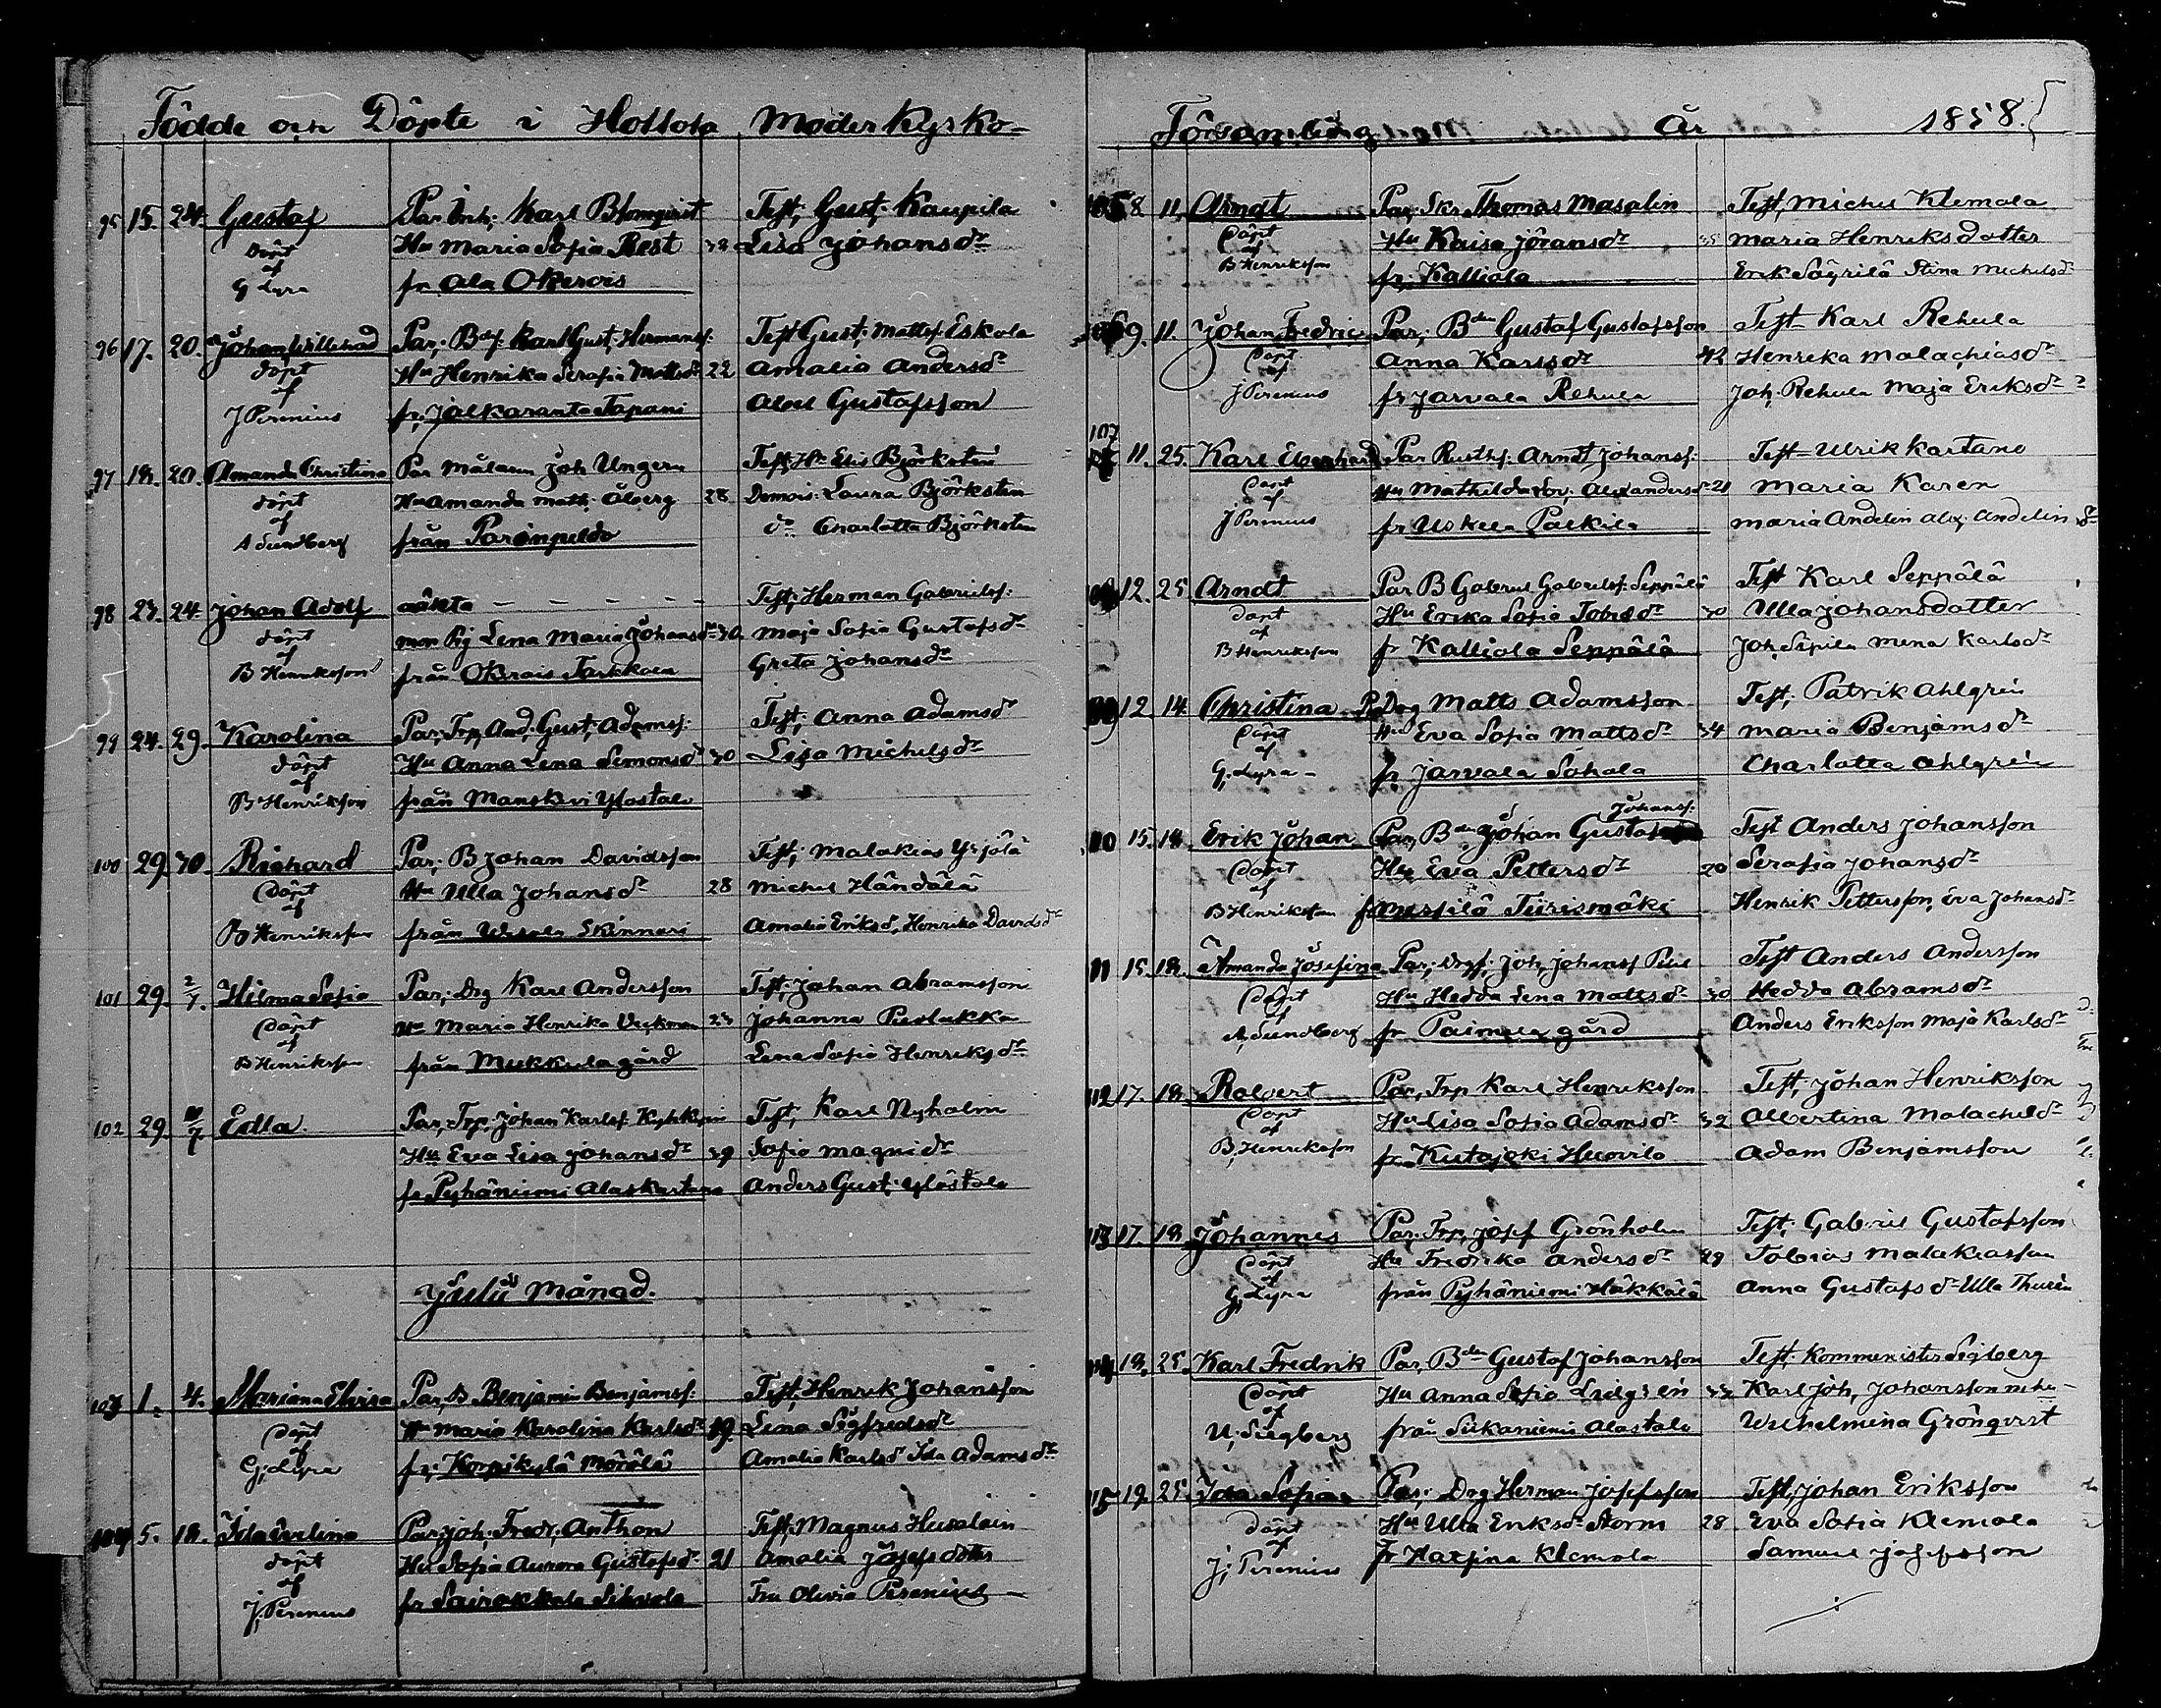 Födde och Döpte i Hollola Moderkyrko-
95 15. 24. Gustaf Par. Inh; Karl Blomqvist Test; Gust; Kaupila
döpt Hu Maria Sofia Rest 38 Lisa Johansdr
af
G Lyra fr Ala Okerois
96 17. 20. Johan Willehad Par; Bdf: Karl Gust; Hermansf: Test Gust; Mattsf Eskola
döpt Hu Henrika Serafia Mattsdr 22 Amalia Andersdr
af
J Perenius fr Jalkaranta Tapani Abel Gustafsson
97 18. 20. Amanda Christina Par Målaren Joh Ungern Test Hr Elis Björksten
döpt Hu Amanda Math: Åberg 28 Demois: Laura Björksten
af
A Sundberg från Parinpelto do Charlotta Björksten
98 23. 24 Johan Adolf oäkta — — — — — Test; Herman Gabrielsf:
döpt mor Pig Lena Maria Johansdr 30. Maja Sofia Gustafsdr
af
B Henriksson från Okerois Tarkkola Greta Johansdr
99 24. 29. Karolina Par; Trp, And; Gust; Adamsf: Test; Anna Adamsdr
döpt Hu Anna Lena Simonsdr 30 Lisa Michelsdr
af
B Henriksson från Manskivi Ylostalo
100 29. 30. Richard Par; B Johan Davidsson Test; Malakias Yrjölä
döpt Hu Ulla Johansdr 28 Michel Händälä
af
B Henriksson från Wesala Skinnari Amalia Eriksdr, Henrika Davidsdr
101 29. 2/7. Hilma Sofia Par; Drg Karl Andersson Test; Johan Abramsson
döpt Hu Maria Henrika Uckman 23 Johanna Puolakka
af
B Henriksson från Mukkula gård Lena Sofia Henriksdr
102 29. 10/7. Edla. Par; Trp; Johan Karlsf Test; Karl Nyholm
Hu Eva Lisa Johansdr 39 Sofia Magnidr
fr Pyhäniemi Alaskartano Anders Gust; Ylöstalo
Julii Månad.
103 1. 4. Mariana Elvira Par; B Benjamin Benjamsf: Test; Henrik Johansson
döpt Hu Maria Karolina Karlsdr 19. Lena Sigfredsdr
af
G; Lyra fr; Korpikylä Mörölä Amalia Karlsdr Ida Adamsdr
104 5. 18. Ida Evelina Par Joh; Fredr; Anthon Test; Magnus Husalain
döpt Hu Sofia Aurora Gustafsdr 21 Amalia Josefs dotter
af
J; Perenius fr Sairakkala Sihvola Fru Olivia Perenius
Församling År 1858.
105 8 11. Arndt Par; Skr Thomas Masalin Test; Michel Klemola
döpt Hu Kaisa Göransdr 35 Maria Henriksdotter
af
B Henriksson fr; Kalliola Erik Säyrilä Stina Michelsdr
106 9. 11. Johan Fredric Par; Bden Gustaf Gustafsson Test Karl Rehula
döpt Anna Karlsdr 42 Henrika Malachiasdr
af
J Perenius fr Jarvala Rehula Joh, Rehula Maja Eriksdr
107 11. 25. Karl Evenhard Par Rusthf: Arndt Johansf: Test Ulrik Kartano
döpt Hu Mathilda Lov: Alexandersdr 21 Maria Karen
af
J Perenius fr Uskila Paekila Maria Andelin Alex; Andelin
12. 25 Arndt Par B Gabriel Gabrielsf: Seppälä Test Karl Seppälä
döpt Hu Erika Sofia Tobiedr 30 Ulla Johansdotter
af
B Henriksson fr Kalliola Seppälä Joh, Sipila Mina Karlsdr
12. 14. Christina Par Drg Matts Adamsson Test; Patrik Ahlgrén
döpt Hu Eva Sofia Mattsdr 34 Maria Benjamsdr
af
G; Lyra - fr Jarvala Sohala Charlotta Ahlgrén
110 15. 18. Erik Johan Par; Bden Johan Gustaf Johansf: Test Anders Johansson
döpt Hu Eva Pettersdr 20 Serafia Johansdr
af
B Henriksson fr Hersilä Tiirismäki Henrik Pettersson, Eva Johansdr
11 15. 18. Amanda Josefina Par; Drgf; Joh, Johansf Test Anders Andersson
döpt Hu Hedda Lena Mattsdr 30 Hedda Abramsdr
af
A, Sundberg fr Paimela gård Anders Eriksson Maja Karlsdr
112 17. 18. Robert Par, Trp Karl Henriksson Test; Johan Henriksson
döpt Hu Lisa Sofia Adamsdr 32 Albertina Malacheldr
af
B; Henriksson fr Kutajoki Huovila Adam Benjamsson
113 17. 18 Johannes Par; Trp, Josef Grönholm Test; Gabriel Gustafsson
döpt Hu Fredrika Andersdr 29 Tobias Malakiasson
af
G; Lyra från Pyhäniemi Häkkälä Anna Gustafsdr Ulla Thurén
114 18. 25. Karl Fredrik Par, Bden Gustaf Johansson Test; Kommunister Sigberg
döpt Hu Anna Sofia Lidgrén 32 Karl Joh, Johansson
af
U; Siegberg från Siikaniemi Alastalo Wilhelmina Grönqvist
115 19. 25. Ida Sofia Par; Drg Herman Josefsson Test; Johan Eriksson
döpt Hu Ulla Eriksdr Storm 28 Eva Sofia Klemola
af
J; Perenius fr Hatsina Klemola Samuel Josefsson